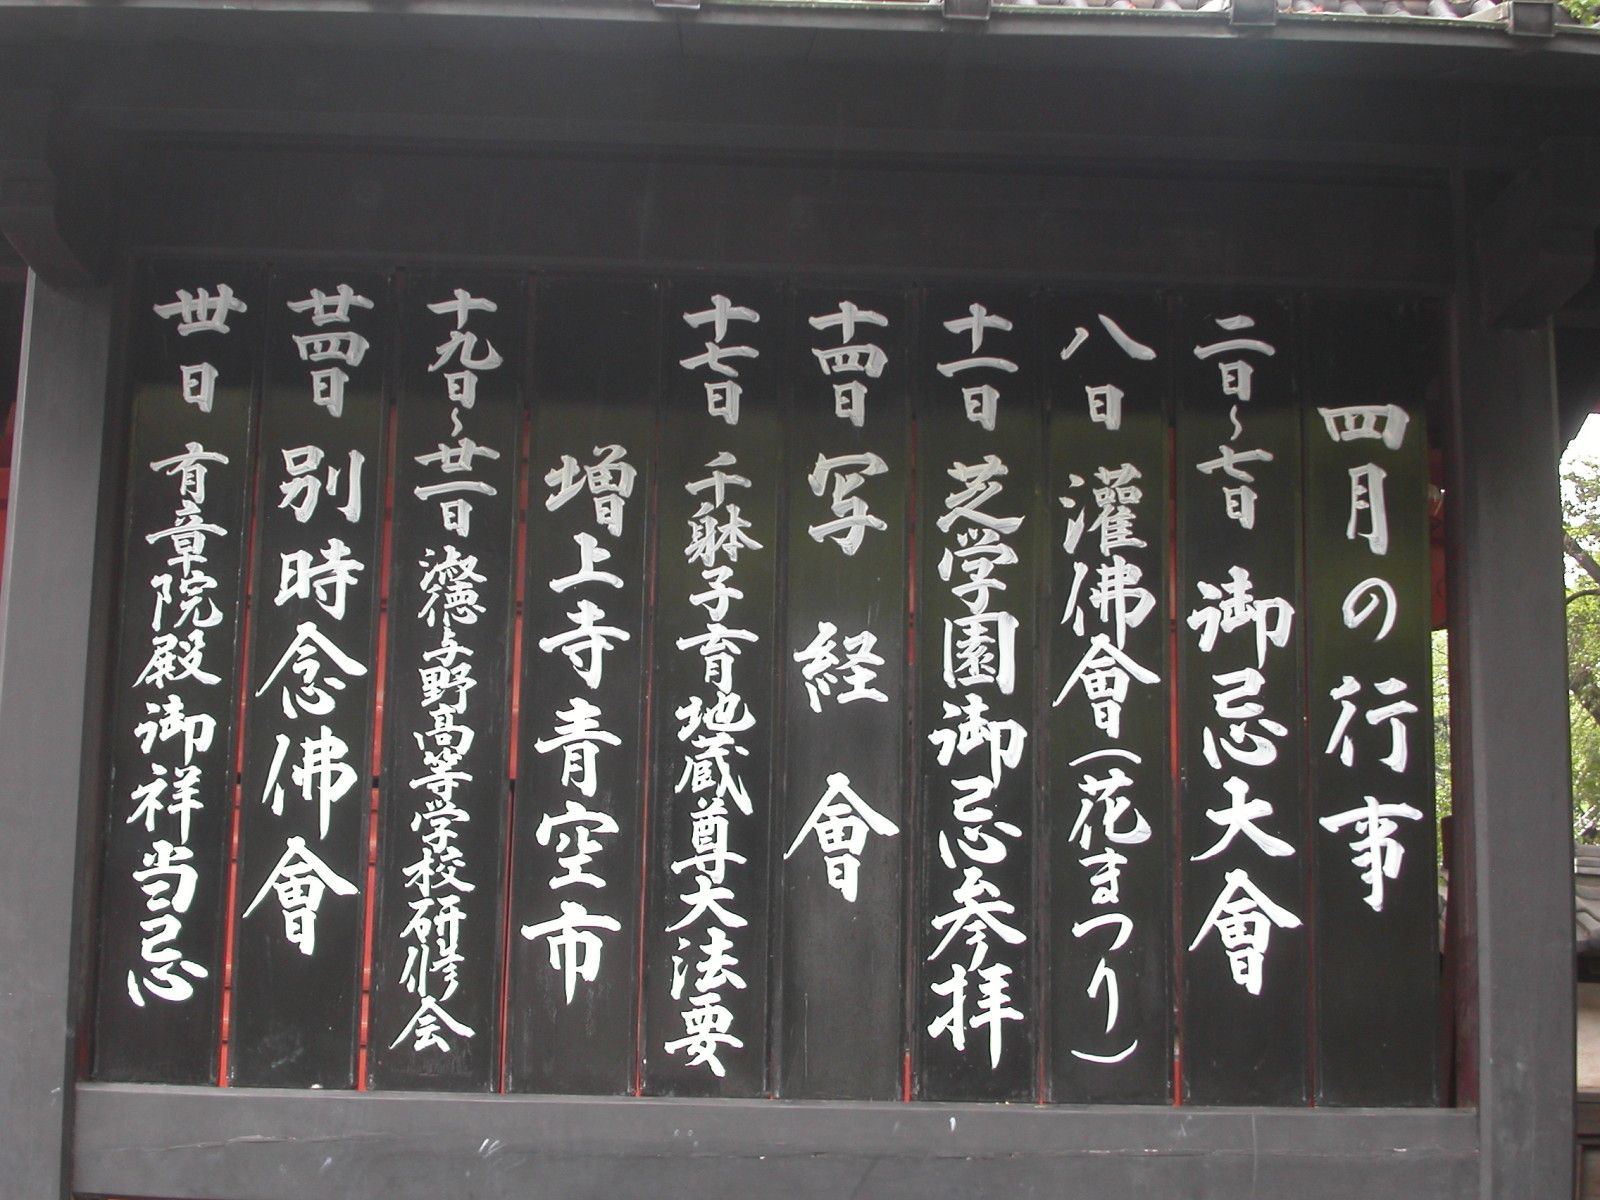 四月の行事
二日～七日 御忌大會
八日 灌佛會(花まつり)
十一日 芝学園御忌参拝
十四日 写経會
十七日 千躰子育地蔵尊大法要
増上寺青空市
十九日～廿一日 淑徳与野高等学校研修会
廿四日 別時念佛會
卅日 有章院殿御祥当忌